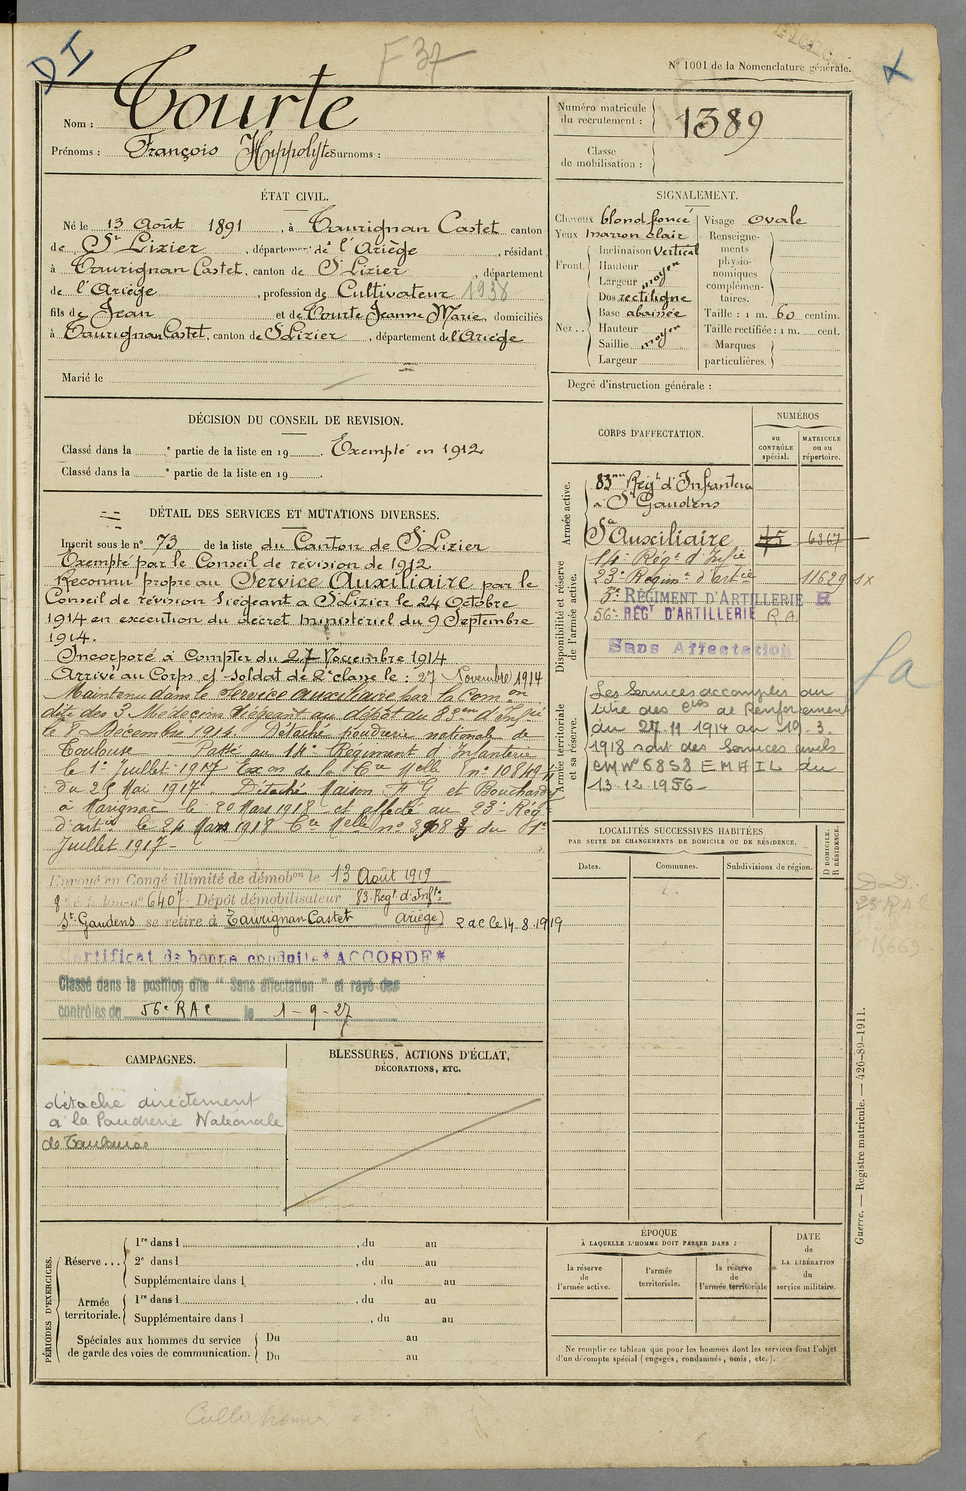 D I
F 37
N° 1001 de la Nomenclature générale.
Nom : Tourte
Prénoms : François Hippolyte Surnoms :
Numéro matricule du recrutement : 1389
Classe de mobilisation :
ÉTAT CIVIL.
Né le 13 Août 1891, à Taurignan Castet canton
de St Lizier, département de l'Ariège, résidant
à Taurignan Castet, canton de St Lizier, département
de l'Ariège, profession de Cultivateur 1938
fils de Jean et de Tourte Jeanne Marie, domiciliés
à Taurignan Castet, canton de St Lizier, département de l'Ariège
Marié le
SIGNALEMENT.
Cheveux blond foncé
Yeux marron clair
Front. Inclinaison Vertical
Hauteur moyen
Largeur
Nez.. Dos rectiligne
Base abaissée
Hauteur moy
Saillie
Largeur
Visage Ovale
Renseignements physionomiques complémentaires.
Taille : 1 m. 60 centim.
Taille rectifiée : 1 m. cent.
Marques particulières.
Degré d'instruction générale :
DÉCISION DU CONSEIL DE REVISION.
Classé dans la e partie de la liste en 19 . Exempté en 1912
Classé dans la e partie de la liste en 19 .
DÉTAIL DES SERVICES ET MUTATIONS DIVERSES.
Inscrit sous le n° 73 de la liste du Canton de St Lizier
Exempté par le Conseil de révision de 1912
Reconnu propre au Service Auxiliaire par le
Conseil de révision siégeant à St Lizier le 24 Octobre
1914 en exécution du décret ministériel du 9 Septembre
1914.
Incorporé à Compter du 27 Novembre 1914
Arrivé au Corps et soldat de 2e classe le : 27 Novembre 1914
Maintenu dans le Service auxiliaire par la Comon
dite des 3 Médecins siégeant au dépôt du 83em d'Infie
le 8 Décembre 1914. Détaché poudrerie nationale de
Toulouse Passé au 14e Régiment d'Infanterie
le 1er Juillet 1917 Exon de la Cre Melle n° 10849
du 25 Mai 1917. Détaché Maison F G et Bouchardy
à Marignac le 20 Mars 1918 et affecté au 23e Régt
d'artie le 24 Mars 1918 Cre Melle n° du 1er
Juillet 1917 -
Envoyé en Congé illimité de démobon le 13 Août 1919
n° 6407. Dépôt démobilisateur 83 Regt d'Infie
St Gaudens se retire à Taurignan Castet Ariège) R a c le 14-8-1919
Certificat de bonne conduite * ACCORDÉ *
Classé dans la position dite "Sans affectation" et rayé des
contrôles du 56e RAC le 1-9-27
CORPS D'AFFECTATION.
NUMÉROS
au CONTRÔLE spécial.
MATRICULE ou au répertoire.
Armée active.
83me Régt d'Infanterie
à St Gaudens
Sce Auxiliaire 45 6367
Disponibilité et réserve de l'armée active.
14e Régt d'Infie
23e Régimt d'artie 11629
RÉGIMENT D'ARTILLERIE
56e RÉGT D'ARTILLERIE R A
Sans Affectation
Armée territoriale et sa réserve.
Les Services accomplis au
titre des Cies de Renforcement
du 27.11 1914 au 19.3.
1918 sont des Services civils
CM N° 6858 EMAIL du
13.12.1956 -
LOCALITÉS SUCCESSIVES HABITÉES
PAR SUITE DE CHANGEMENTS DE DOMICILE OU DE RÉSIDENCE.
D DOMICILE. R RÉSIDENCE.
Dates. Communes. Subdivisions de région.
CAMPAGNES.
détaché directement
à la Poudrerie Nationale
de Toulouse
BLESSURES, ACTIONS D'ÉCLAT,
DÉCORATIONS, ETC.
PÉRIODES D'EXERCICES.
Réserve ... 1re dans l , du au
2e dans l , du au
Supplémentaire dans l , du au
Armée territoriale. 1re dans l , du au
Supplémentaire dans l , du au
Spéciales aux hommes du service de garde des voies de communication. Du au
Du au
ÉPOQUE
À LAQUELLE L'HOMME DOIT PASSER DANS :
la réserve de l'armée active.
l'armée territoriale.
la réserve de l'armée territoriale
DATE de LA LIBÉRATION du service militaire.
Ne remplir ce tableau que pour les hommes dont les services font l'objet
d'un décompte spécial (engagés, condamnés, omis, etc.).
Guerre. — Registre matricule. — 426-89-1911.